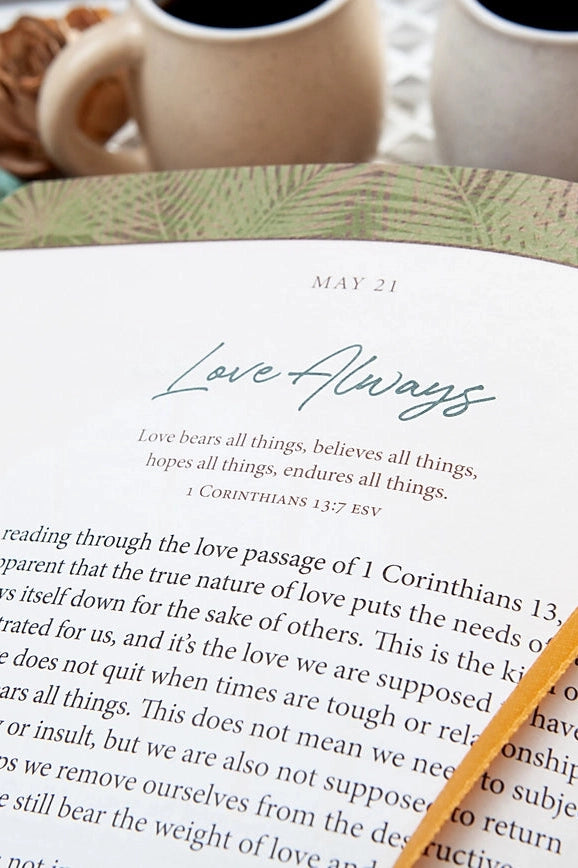 MAY 21
Love Always
Love bears all things, believes all things,
hopes all things, endures all things.
1 CORINTHIANS 13:7 ESV
reading through the love passage of 1 Corinthians 13,
that the true nature of love puts the needs
itself down for the sake of others. This is the
for us, and it's the love we are supposed have
does not quit when times are tough or
all things. This does not mean we need to
or insult, but we are also not supposed to return
we remove ourselves from the destructive
still bear the weight of love and
not